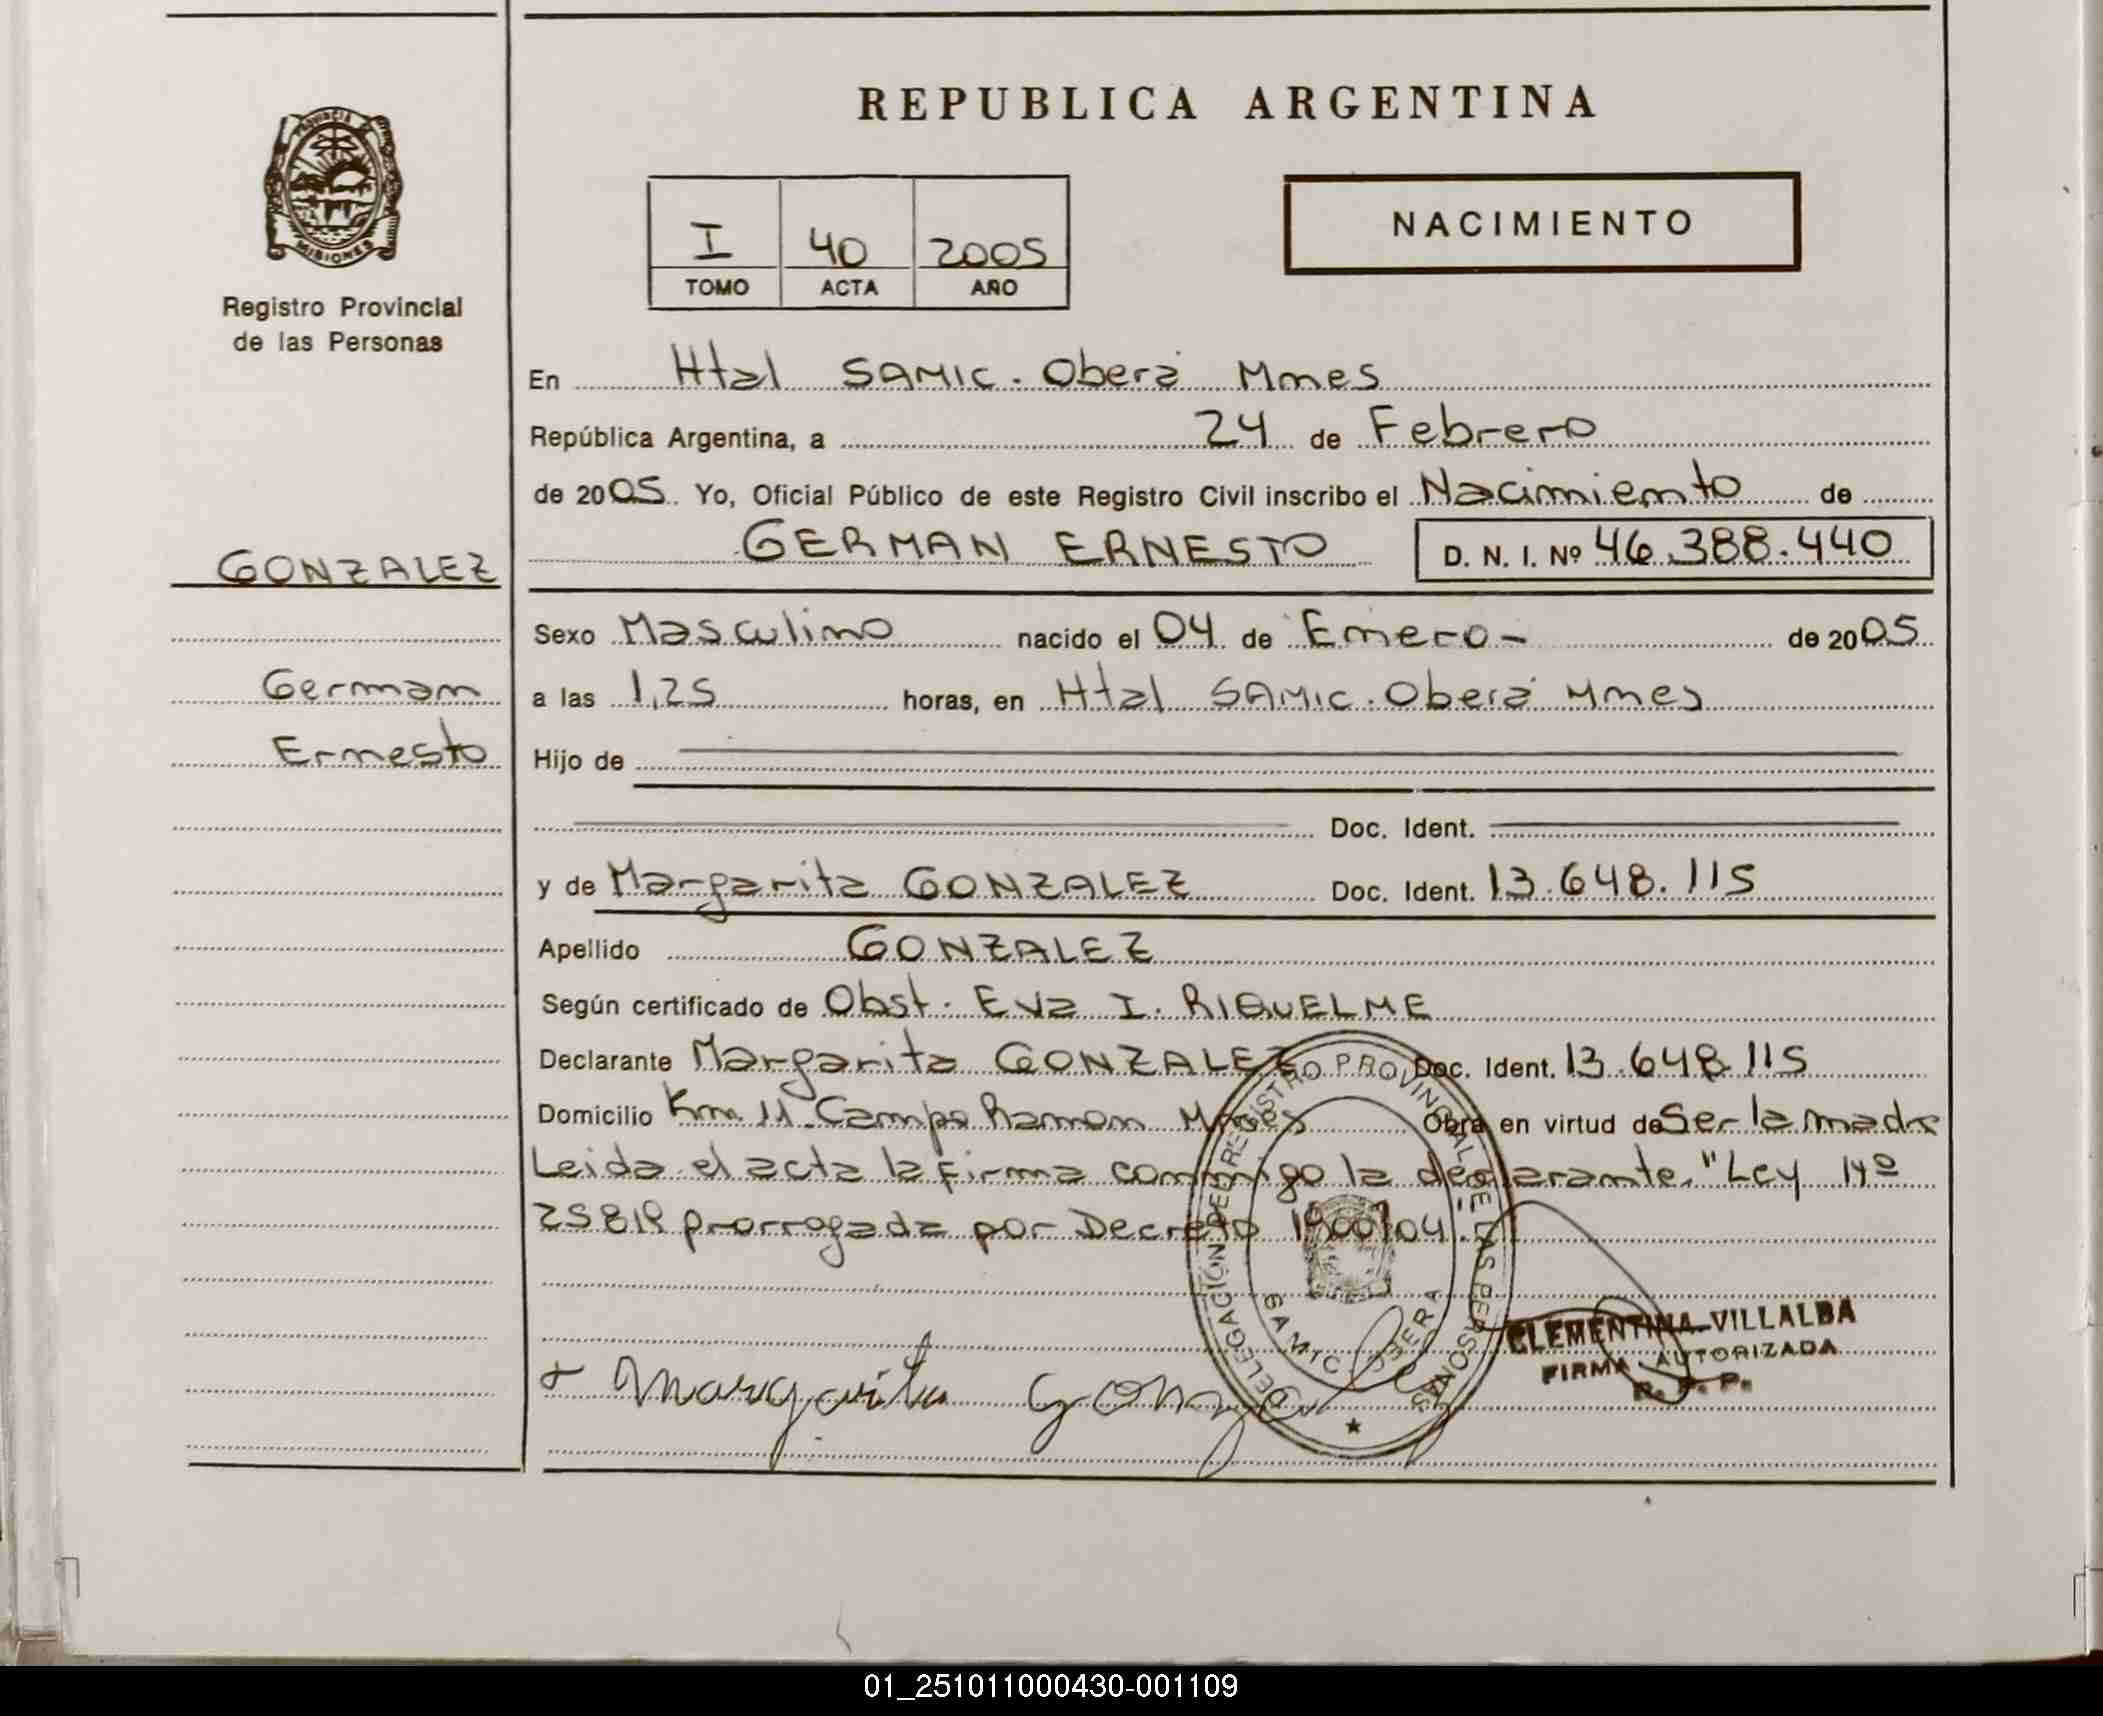 REPUBLICA ARGENTINA
PROVINCIA DE
MISIONES
Registro Provincial
de las Personas
I 40 2005
TOMO ACTA AÑO
NACIMIENTO
En Htal SAMIC. Oberá Mnes
República Argentina, a 24 de Febrero
de 2005. Yo, Oficial Público de este Registro Civil inscribo el Nacimiento de
GONZALEZ
GERMAN ERNESTO D. N. I. Nº 46.388.440
Sexo Masculino nacido el 04 de Enero- de 2005
German
a las 1,25 horas, en Htal SAMIC. Oberá Mnes
Ernesto
Hijo de
Doc. Ident.
y de Margarita GONZALEZ Doc. Ident. 13.648.115
Apellido GONZALEZ
Según certificado de Obst. Eva I. RIQUELME
Declarante Margarita GONZALEZ Doc. Ident. 13.648.115
Domicilio Km. 11. Campo Ramon Mnes Obra en virtud de Ser la madre
Leida el acta la firma conmigo la declarante. "Ley Nº
25819 prorrogada por Decreto 1900/04".
DELEGACIÓN DEL REGISTRO PROVINCIAL DE LAS PERSONAS
SAMIC OBERA
CLEMENTINA VILLALBA
FIRMA AUTORIZADA
R. P. P.
Margarita Gonzalez
01_251011000430-001109